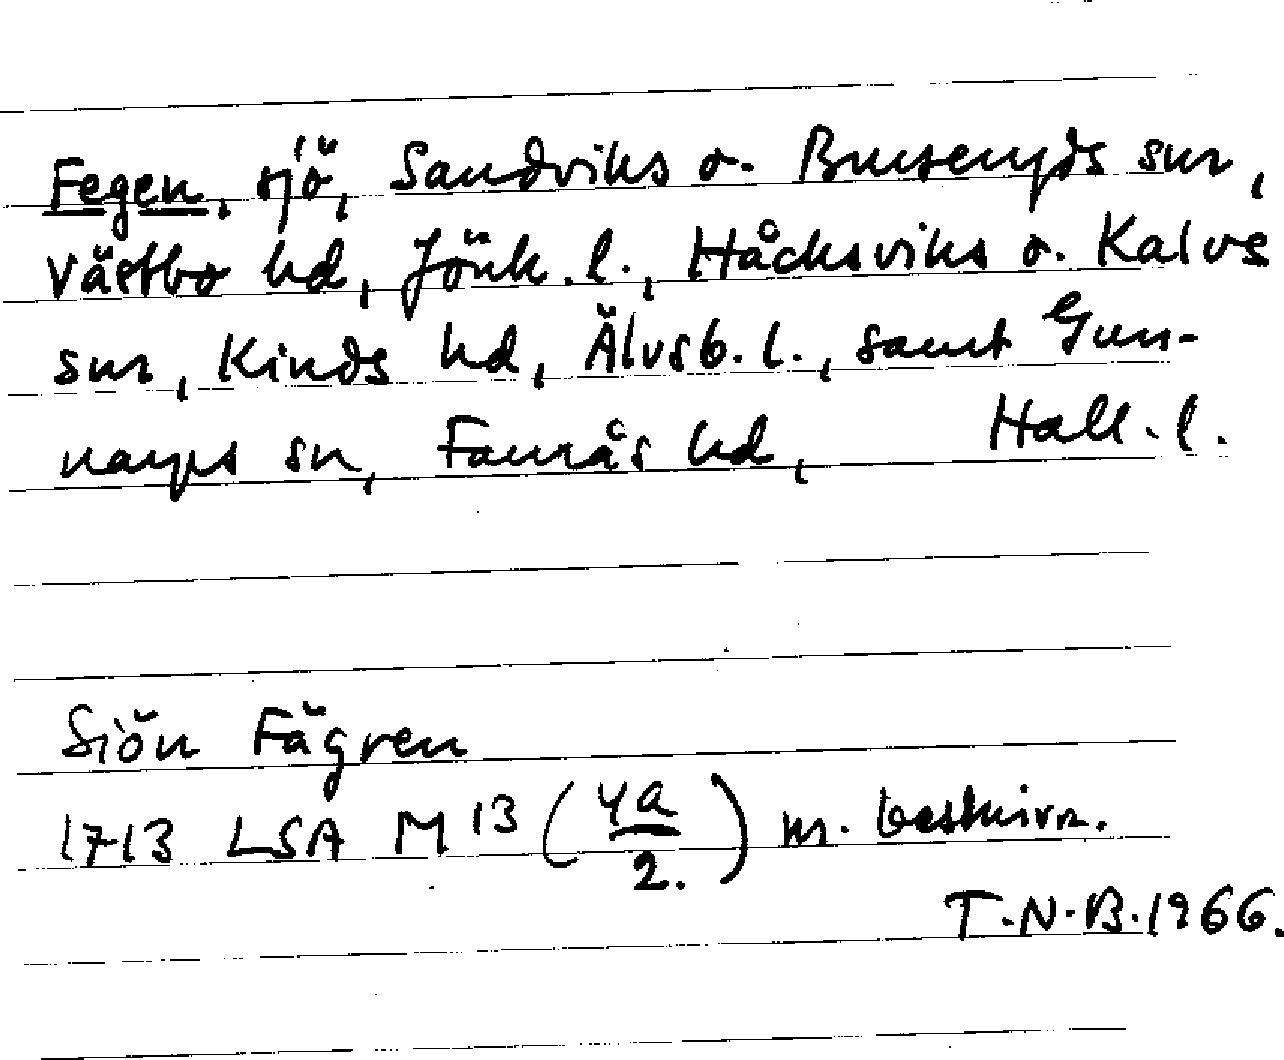 Fegen, sjö, Sandviks o. Burseryds snr,
Västbo hd, Jönk. l., Håcksviks o. Kalvs
snr, Kinds hd, Älvsb. l., samt Gun-
narps sn, Faurås hd, Hall. l.
Siön Fägren
1713 LSA M 13 (4a/2.) m. beskrivn.
T.N.B. 1966.